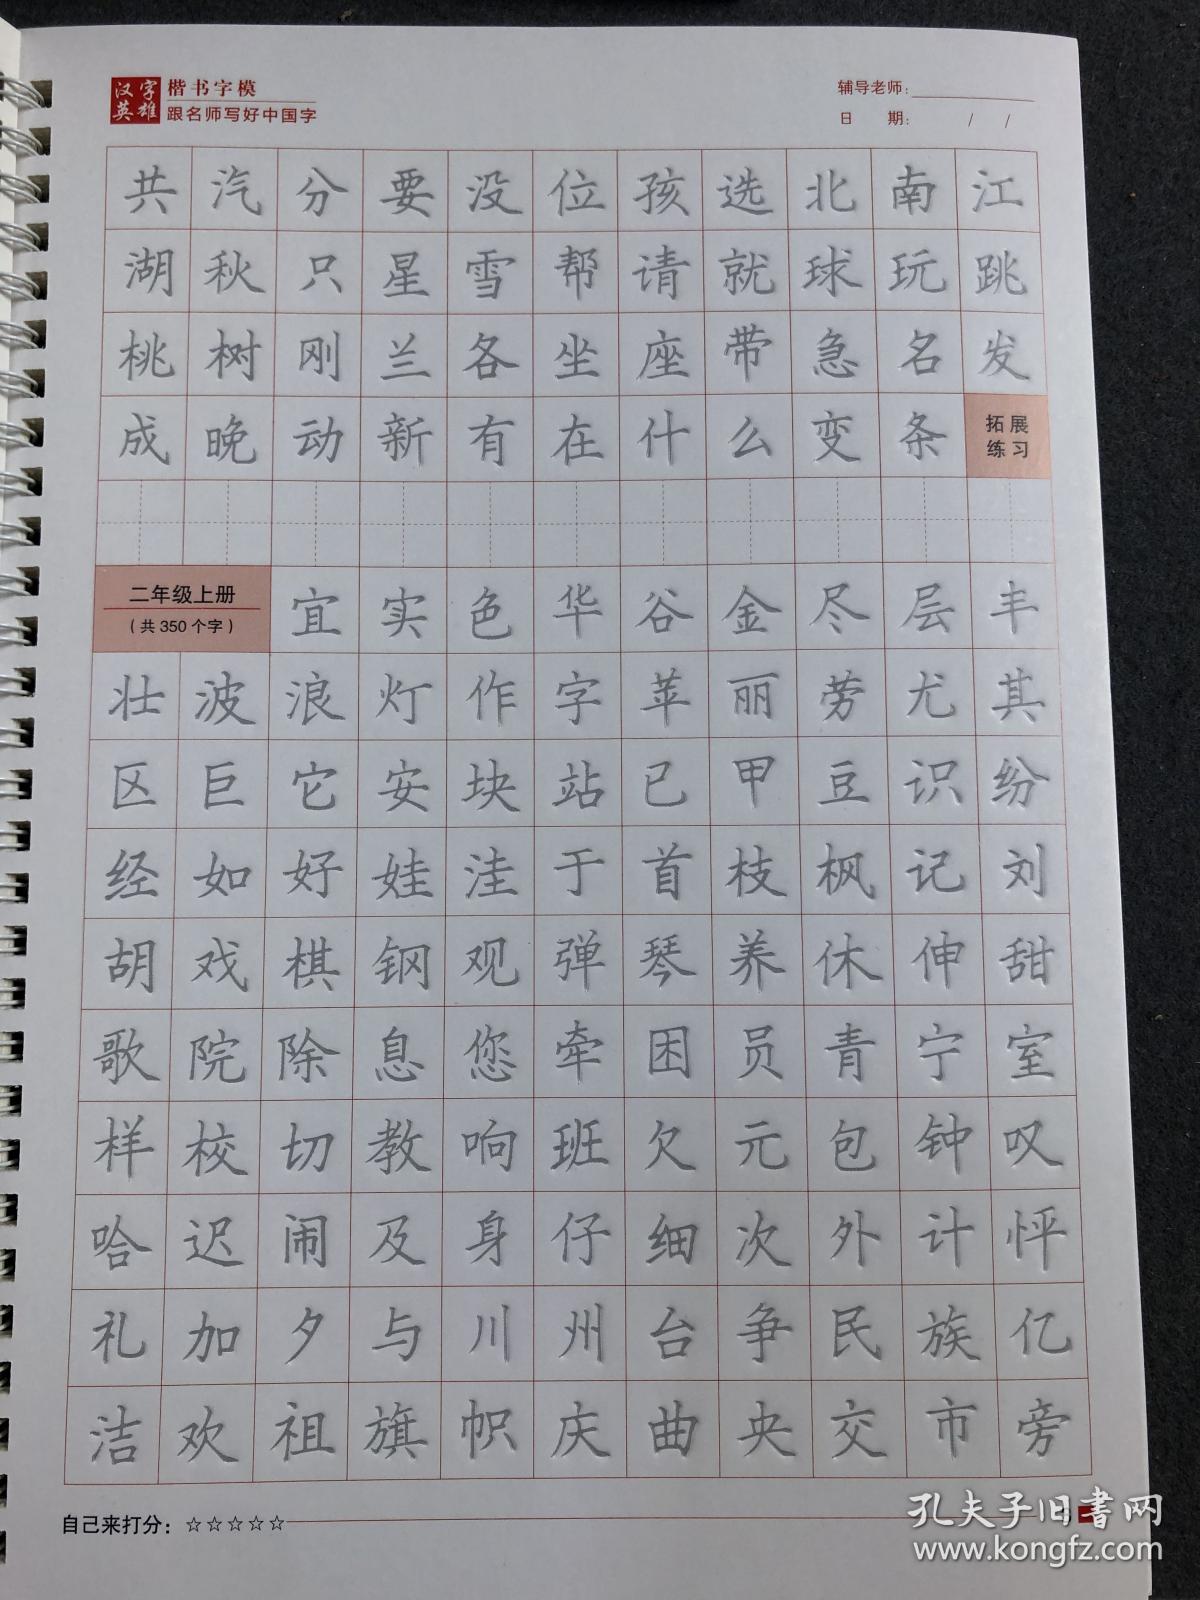 汉字英雄 楷书字模
跟名师写好中国字
辅导老师：
日 期： / /
共汽分要没位孩选北南江
湖秋只星雪帮请就球玩跳
桃树刚兰各坐座带急名发
成晚动新有在什么变条 拓展练习
二年级上册
（共350个字）
宜实色华谷金尽层丰
壮波浪灯作字苹丽劳尤其
区巨它安块站已甲豆识纷
经如好娃洼于首枝枫记刘
胡戏棋钢观弹琴养休伸甜
歌院除息您牵困员青宁室
样校切教响班欠元包钟叹
哈迟闹及身仔细次外计怦
礼加夕与川州台争民族亿
洁欢祖旗帜庆曲央交市旁
自己来打分：☆☆☆☆☆
孔夫子旧书网
www.kongfz.com